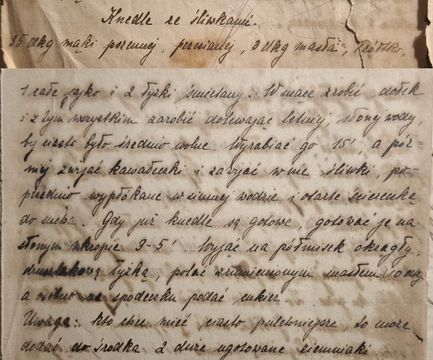 Knedle ze śliwkami.
35 dkg mąki pszennej, przesianej, 3 dkg masła, żółtko,
1 całe jajko i 2 łyżki śmietany. W mące zrobić dołek
i z tym wszystkim zarobić dolewając letniej, słonej wody,
by ciasto było średnio wolne. Wyrabiać go 15', a póź-
niej zwijać kawałeczki i zawijać w nie śliwki, po-
przednio wypłókane w zimnej wodzie i otarte ścierecką
do sucha. Gdy już knedle są gotowe, gotować je na
słonym wkropie 3-5'. Wyjąć na półmisek okrągły,
łyżką, polać zrumienionym masłem
a na spodeczku podać cukier.
Uwaga: kto chce mieć ciasto pulchniejsze, to może
dodać do środka 2 duże ugotowane ziemniaki